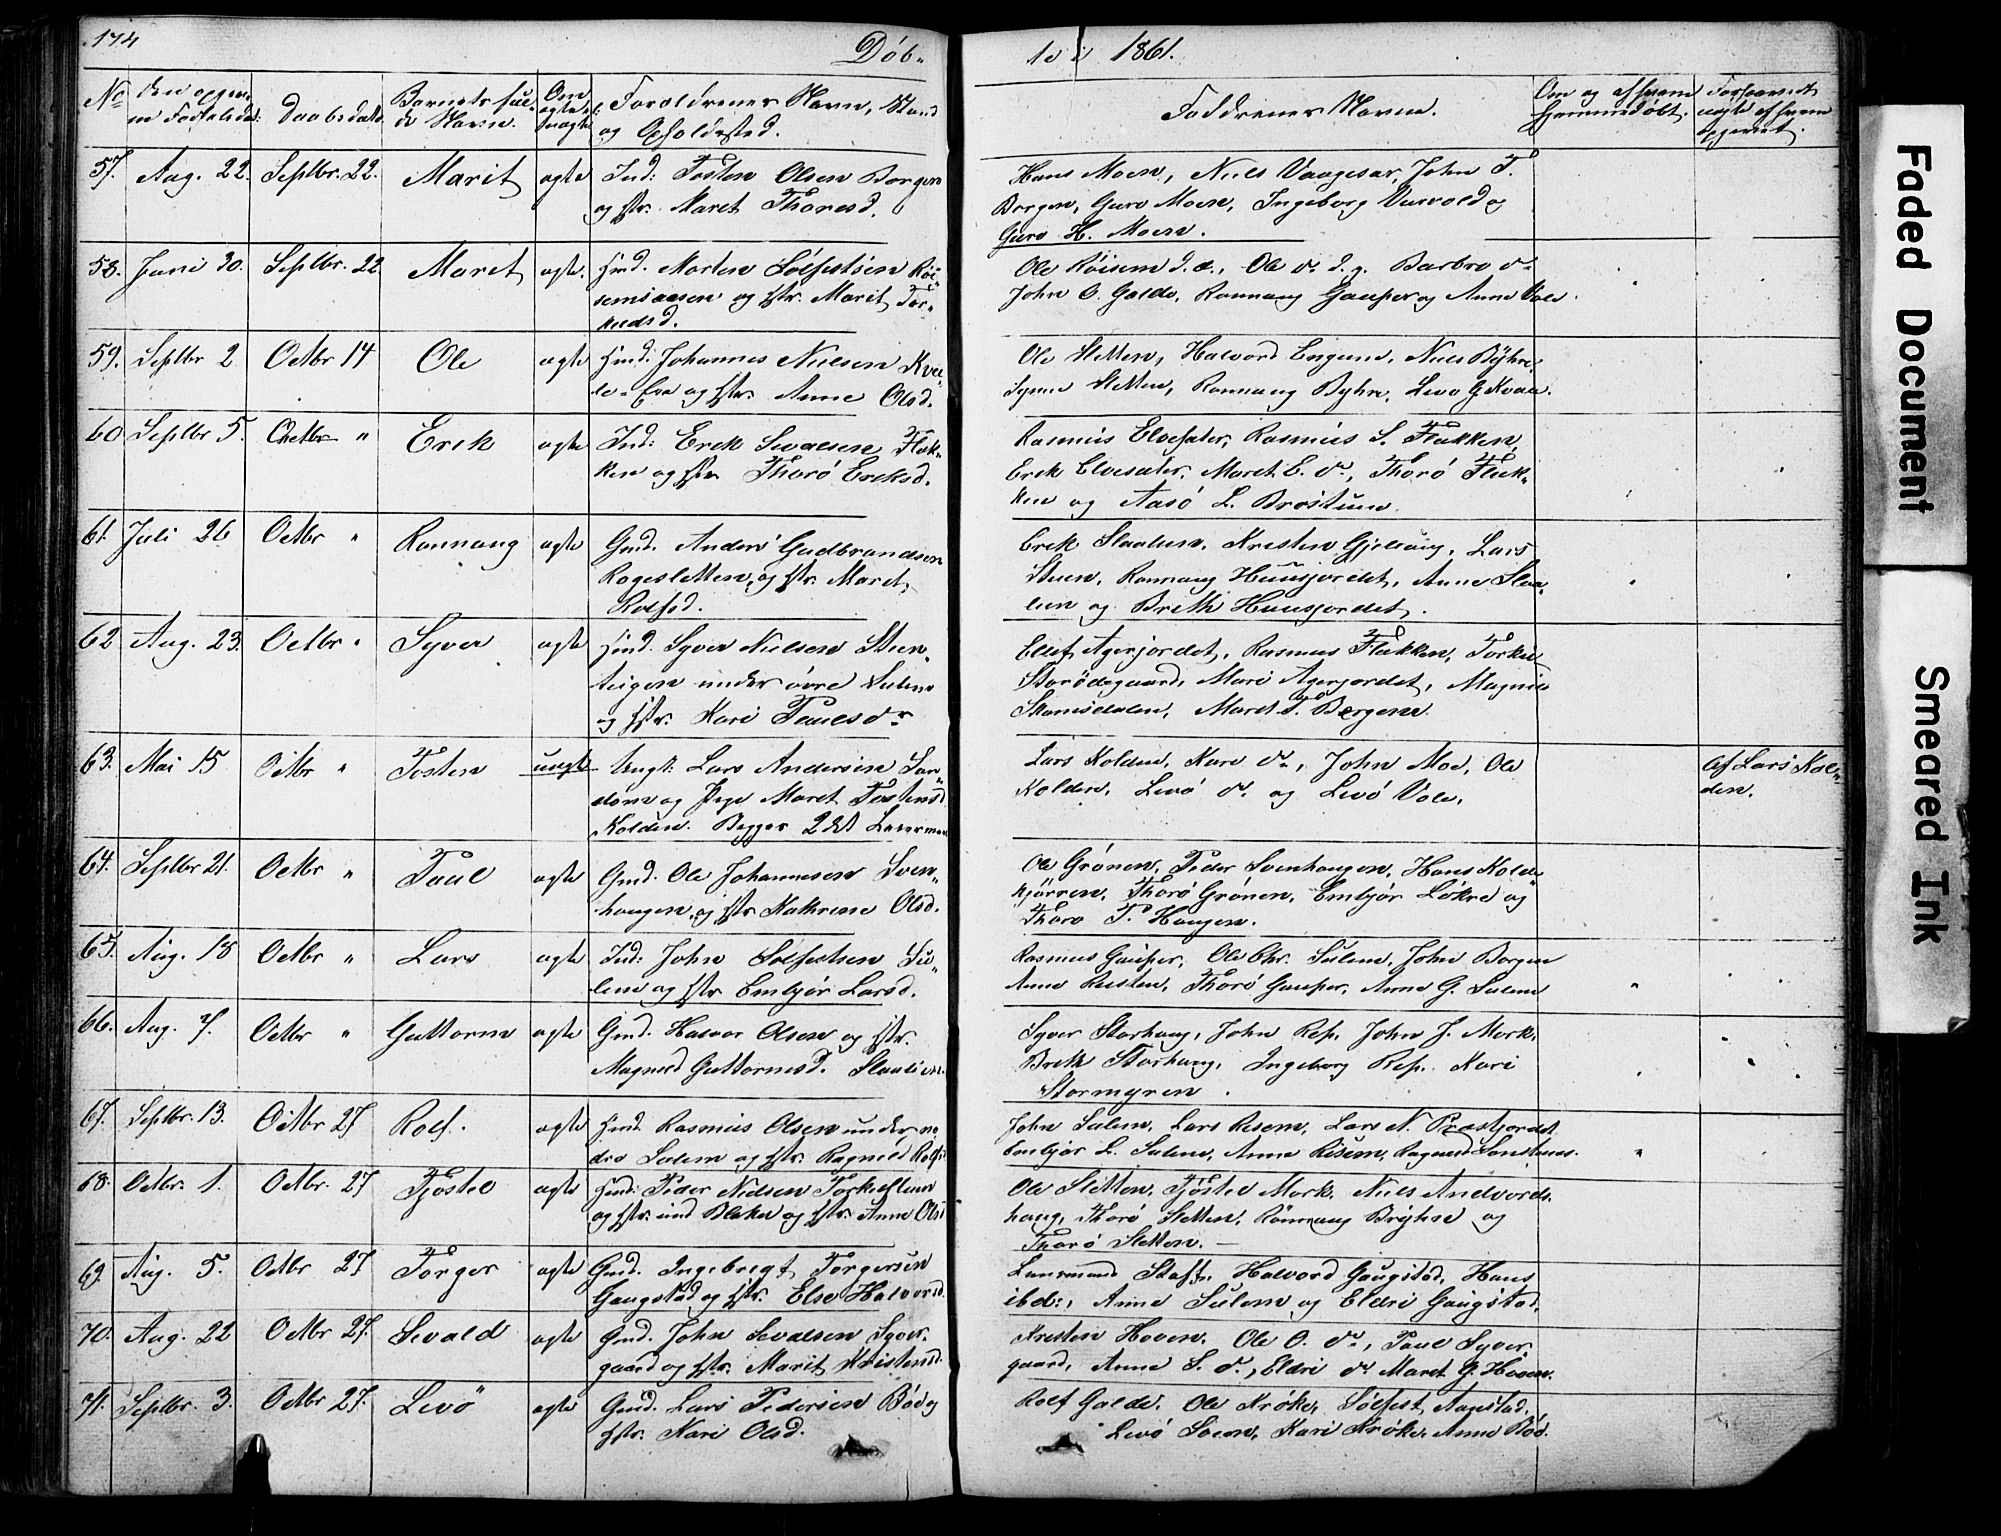 174
Döb-
te i 1861.
No
Daabsdato.
Barnets ful-
de Navn.
Om
ægte
Forældrenes Navn, Stand
og Opholdssted.
Faddrenes Navne.
Om og af hvem
hjemmedøbt.
57. Aug. 22. Septbr. 22. Marit ægte Ind: Tosten Olsen Borgen
og Hstr. Maret Thoresd.
Hans Moen, Niels Vaagesar, John T.
Borgen, Guro Moen, Ingeborg
Guro H. Moen.
58. Juni 30. Septbr. 22 Maret ægte. Hmd. Morten Sølfestsen Röi-
semsaasen og Hstr. Marit Tor-
kildsd.
Ole Röisem d.æ., Ole do d.y. Barbro do
John O. Galde, Rannaug Gaupar og Anne Vole.
59. Septbr 2 Octbr 14 Ole ægte Hmd. Johannes Nielsen
og Hstr. Anne Olsd.
Ole Sletten, Halvord Engene, Niels Byhre,
Synne Sletten, Rannaug Byhre, Levo G. Kvale.
60 Septbr 5. Octbr " Erik ægte Ind: Erik Sevalsen Flak-
ken og Hstr Thorö Eriksd.
Rasmus Elvesæter, Rasmus S. Flakken,
Erik Elvesæter, Maret E. do, Thorö Flak-
ken og Aasö L. Bröstuen.
61. Juli 26 Octbr " Rannaug ægte Gmd. Anders Gudbrandsen
Rogesletten, og Hstr. Maret
Rolfsd.
Erik Slaalien, Kristen Gjeilaug, Lars
Steen, Rannaug Huusjordet, Anne Slaa-
lien og Breth Huusjordet.
62 Aug. 23. Octbr " Syver ægte Hmd. Syver Nielsen Steen-
teigen under övre Sulem
og Hstr. Kari Paulsdr
Ellef Agerjordet, Rasmus Flakken, Torkil
Storödegaard, Mari Agerjordet, Magnil
Skamsdalen, Maret T. Bergen.
63. Mai 15 Octbr " Tosten uægte Ungk. Lars Andersen
og Pige Maret Tostensd
Kolden. Begges 2det Leiermaal
Lars Kolden, Kari do, John Moe, Ole
Kolden, Levö do og Levö Vole.
Af Lars Kol-
den.
64. Septbr 21. Octbr " Paul ægte Gmd. Ole Johannesen Sven-
haugen og Hstr Kathrine Olsd.
Ole Grönen, Peder Svenhaugen, Hans Kolde-
kjörren, Thorö Grönen, Embjör Løkre og
Thoro P. Haugen.
65. Aug. 18 Octbr " Lars ægte Ind: John Sølfestsen Su-
lem og Hstr Embjör Larsd.
Rasmus Gaupar, Ole Chr. Sulem, John Borgen
Anne Rusten, Thorö Gaupar, Anne G. Sulem
66. Aug. 7. Octbr " Guttorm ægte Gmd. Halvor Olsen og Hstr.
Magnild Guttormsd. Slaalien.
Syver Storhaug, John Rep, John J. Mork.
Breth Storhaug, Ingeborg Rep. Kari
Stormyren.
67. Septbr. 13. Octbr 27 Rolf. ægte Hmd. Rasmus Olsen under ne-
dre Sulem og Hstr. Ragnild Rolfsd
John Sulem, Lars Risem, Lars N. Præstjordet
Embjör L. Sulem, Anne Risem, Ragnild Sonstenes.
68. Octbr. 1. Octbr. 27 Tjöstel ægte Hmd. Peder Nielsen
og Hstr. Anne Ols
Ole Sletten, Tjöstel Mork, Niels Andvords-
haug, Thorö Sletten, Rönnaug Bryhre og
Thorö Sletten.
69. Aug. 5. Octbr 27 Torger ægte Gmd. Ingebregt Torgersen
Gaugstad og Hstr. Else Halvorsd.
Lensmand Staff, Halvord Gaugstad, Hans
ibd:, Anne Sulem og Eldri Gaugstad.
70. Aug. 22 Octbr 27. Sevald ægte Gmd. John Sevalsen Syver-
gaard og Hstr. Marit Kristensd.
Kresten Hoven. Ole O. do, Paul Syver-
gaard, Anne S. do, Eldri do Maret G. Hoven.
71. Septbr. 3. Octbr 27. Levö ægte Gmd. Lars Pedersen Böe og
Hstr. Kari Olsd.
Rolf Galde. Ole Kröke, Sölfest Aaestad,
Levö Soem, Kari Kröke, Anne Böe.
Faded Document
Smeared Ink